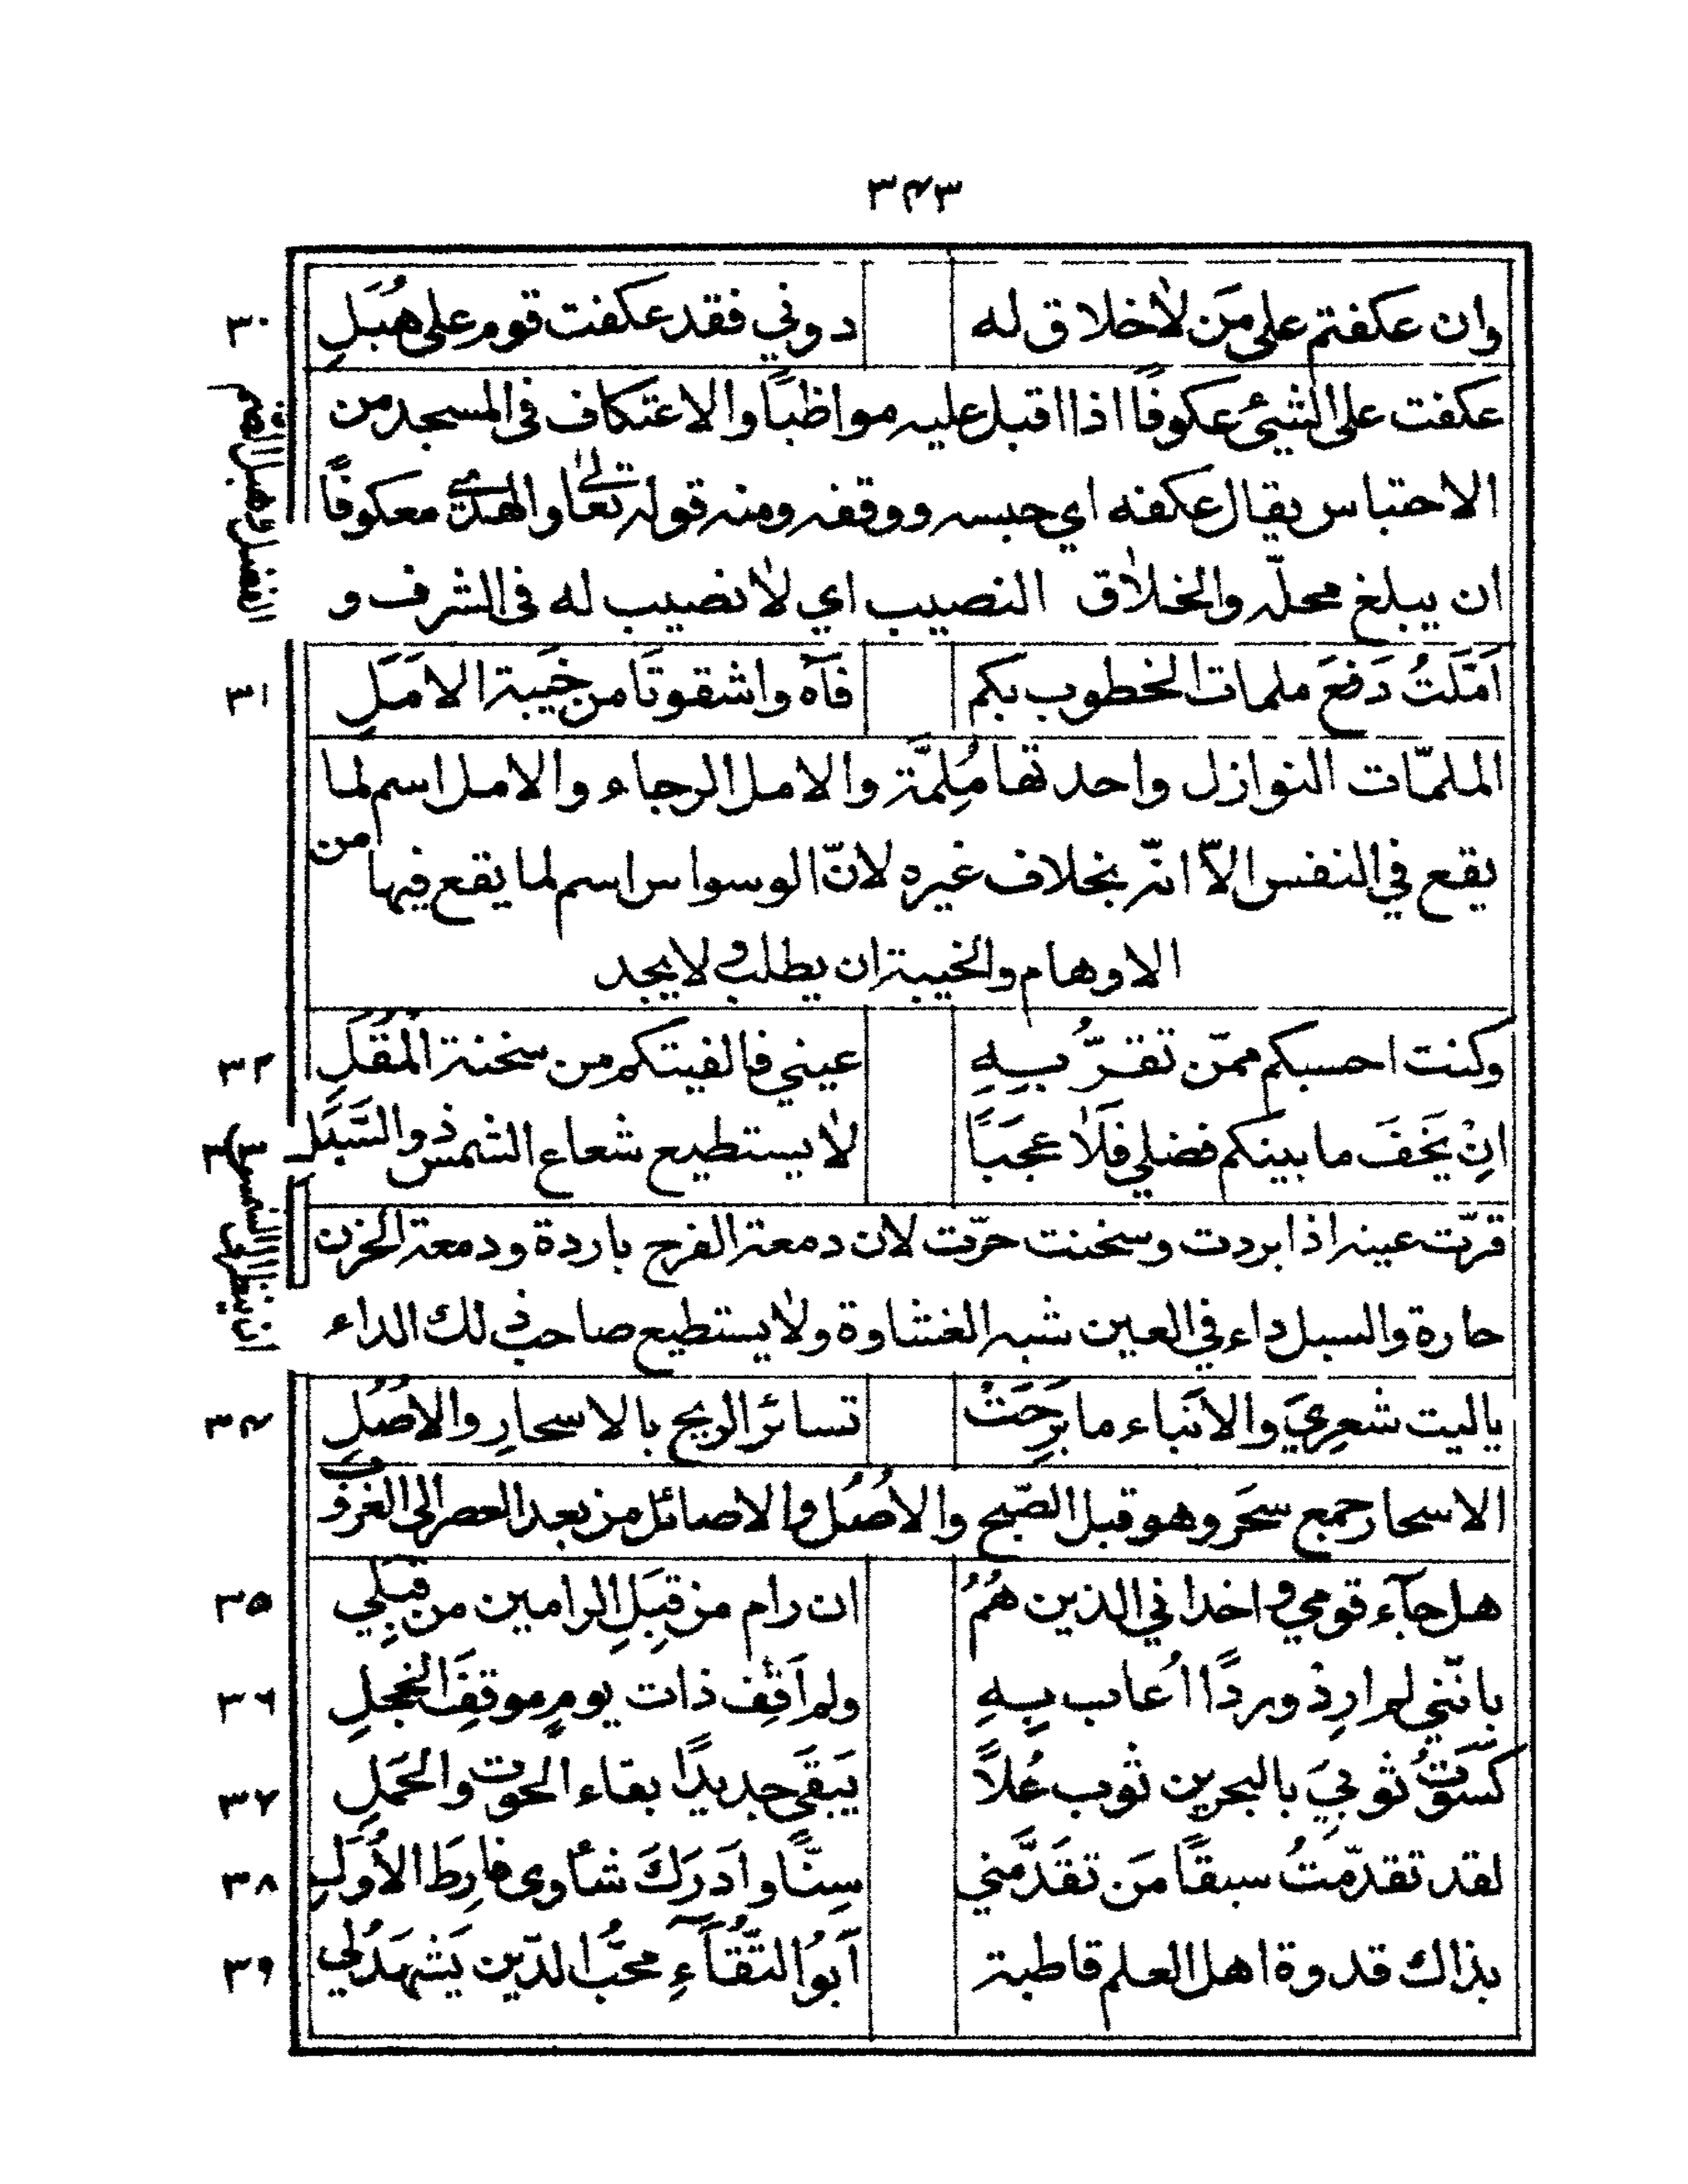 ٣٤٣
وان عكفتم على مَن لاخلاق له دوني فقد عكفت قوم على هُبَلِ ٣٠
عكفت على الشيئ عكوفًا اذا اقبل عليه مواظبًا والاعتكاف فى المسجد من
الاحتباس يقال عكفه اي حبسه ووقفه ومنه قوله تعالى والهدي معكوفًا
ان يبلغ محلّه والخلاق النصيب اي لا نصيب له فى الشرف و
الفضل وهبل
اَمَّلَتُ دَفعَ ملمات الخطوب بكم فآه واشقوتَا من خَيبة الامَلِ ٣١
الملمّات النوازل واحدتها مُلِمَّة والامل الرجاء والامل اسم لما
يقع في النفس الاّ انّه بخلاف غيره لانّ الوسواس اسم لما يقع فيها من
الاوهام والخيبة ان يطلب ولا يجد
وكنت احسبكم ممّن تقرُّ بِهِ عيني فالفيتكم من سخنة المُقَلِ ٣٢
اِنْ يَخَفَ ما بينكم فضلي فَلَا عجَبًا لا يستطيع شعاع الشمس ذو السَّبَلِ ٣٣
قرّت عينه اذا بردت وسخنت حرّت لان دمعة الفرح باردة ودمعة الحزن
حارة والسبل داء في العين شبه الغشاوة ولا يستطيع صاحب ذلك الداء
ان ينظر الى الشمس
ياليت شعرِيَ والاَنباء ما بَرِحَتْ تسائر الريح بالاسحارِ والاُصُلِ ٣٤
الاسحار جمع سَحَر وهو قبل الصّبح والاُصُل والاصائل من بعد العصر الى الغروب
هل جآء قومي واخداني الذين هُمُ ان رام من قِبَلِ الرامين من قِبَلي ٣٥
بانّني لم ارِدْ وِردًا اُعاب بِهِ ولم اَقِف ذات يومٍ موقِفَ الخجلِ ٣٦
كسَوتُ ثوبيَ بالبحرين ثوب عُلاً يَبقَى جديدًا بقاء الحوت والحَمَلِ ٣٧
لقد تقدّمتُ سبقًا مَن تقَدَّمني سِنًّا وادَرَكَ شأوى فارِطَ الاُوَلِ ٣٨
بذاك قدوة اهل العلم قاطبة اَبُوا التُّقَآءِ محُبّ الدّين يَشهَدُ لي ٣٩